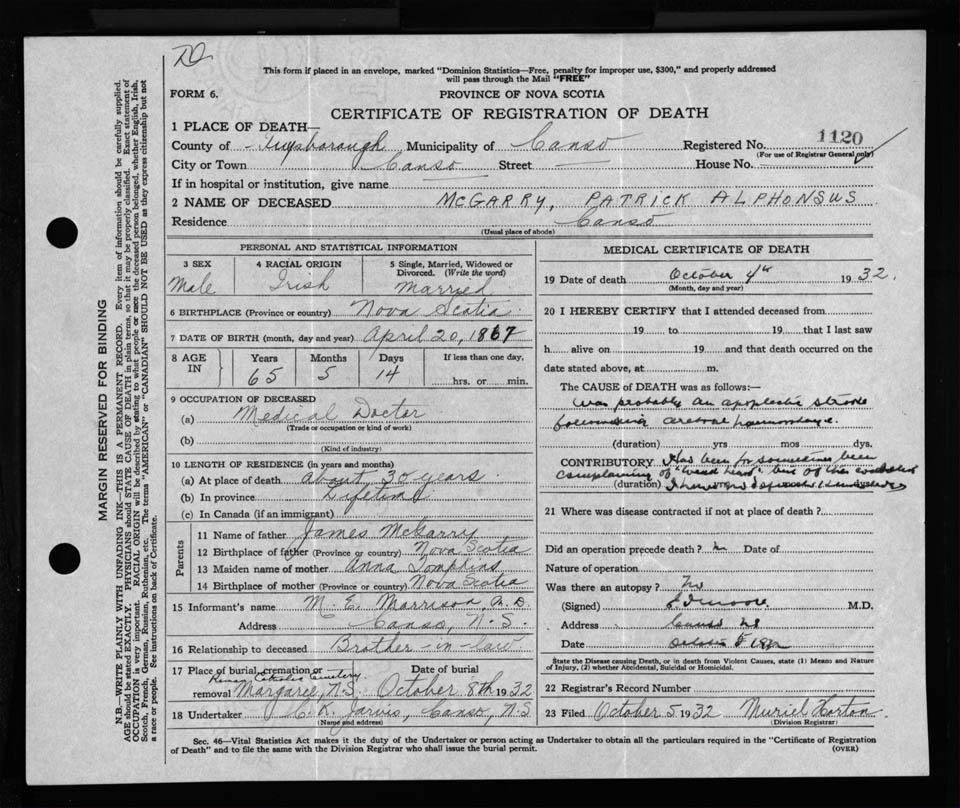 D
This form if placed in an envelope, marked "Dominion Statistics—Free, penalty for improper use, $300," and properly addressed
will pass through the Mail "FREE"
FORM 6. PROVINCE OF NOVA SCOTIA
CERTIFICATE OF REGISTRATION OF DEATH
1 PLACE OF DEATH—
County of Guysborough Municipality of Canso Registered No. 1120
(For use of Registrar General only)
City or Town Canso Street House No.
If in hospital or institution, give name
2 NAME OF DECEASED McGARRY, PATRICK ALPHONSUS
Residence Canso
(Usual place of abode)
PERSONAL AND STATISTICAL INFORMATION
3 SEX 4 RACIAL ORIGIN 5 Single, Married, Widowed or
Divorced. (Write the word)
Male Irish Married
6 BIRTHPLACE (Province or country) Nova Scotia
7 DATE OF BIRTH (month, day and year) April 20, 1867
8 AGE IN Years Months Days If less than one day,
65 5 14 hrs. or min.
9 OCCUPATION OF DECEASED
(a) Medical Doctor
(Trade or occupation or kind of work)
(b)
(Kind of industry)
10 LENGTH OF RESIDENCE (in years and months)
(a) At place of death about 35 years
(b) In province Lifetime
(c) In Canada (if an immigrant)
Parents
11 Name of father James McGarry
12 Birthplace of father (Province or country) Nova Scotia
13 Maiden name of mother Anna Tompkins
14 Birthplace of mother (Province or country) Nova Scotia
15 Informant's name M. E. Morrison, M.D.
Address Canso, N.S.
16 Relationship to deceased Brother-in-law
17 Place of burial, cremation or Date of burial
Roman Catholic Cemetery
removal Margaree, N.S. October 8th 1932
18 Undertaker C. K. Jarvis, Canso, N.S
(Name and address)
MEDICAL CERTIFICATE OF DEATH
19 Date of death October 4th 1932.
(Month, day and year)
20 I HEREBY CERTIFY that I attended deceased from
19 to 19 that I last saw
h alive on 19 and that death occurred on the
date stated above, at m.
The CAUSE of DEATH was as follows:—
was probably an apoplectic stroke
following cerebral haemorrhage.
(duration) yrs mos dys.
CONTRIBUTORY Has been for sometime been
complaining of "head"
(duration)
21 Where was disease contracted if not at place of death?
Did an operation precede death? Date of
Nature of operation
Was there an autopsy? no
(Signed) Moore M.D.
Address Canso NS
Date October 5 1932
State the Disease causing Death, or in death from Violent Causes, state (1) Means and Nature
of Injury, (2) whether Accidental, Suicidal or Homicidal.
22 Registrar's Record Number
23 Filed October 5 1932 Muriel Horton
(Division Registrar)
Sec. 46—Vital Statistics Act makes it the duty of the Undertaker or person acting as Undertaker to obtain all the particulars required in the "Certificate of Registration
of Death" and to file the same with the Division Registrar who shall issue the burial permit. (OVER)
MARGIN RESERVED FOR BINDING
N.B.—WRITE PLAINLY WITH UNFADING INK—THIS IS A PERMANENT RECORD. Every item of information should be carefully supplied.
AGE should be stated EXACTLY. PHYSICIANS should STATE CAUSE OF DEATH in plain terms, so that it may be properly classified. Exact statement of
OCCUPATION is very important. RACIAL ORIGIN will be described by stating to what people or race the deceased person belonged, whether English, Irish,
Scotch, French, German, Russian, Ruthenian, etc. The terms "AMERICAN" or "CANADIAN" SHOULD NOT BE USED as they express citizenship but not
a race or people. See instructions on back of Certificate.